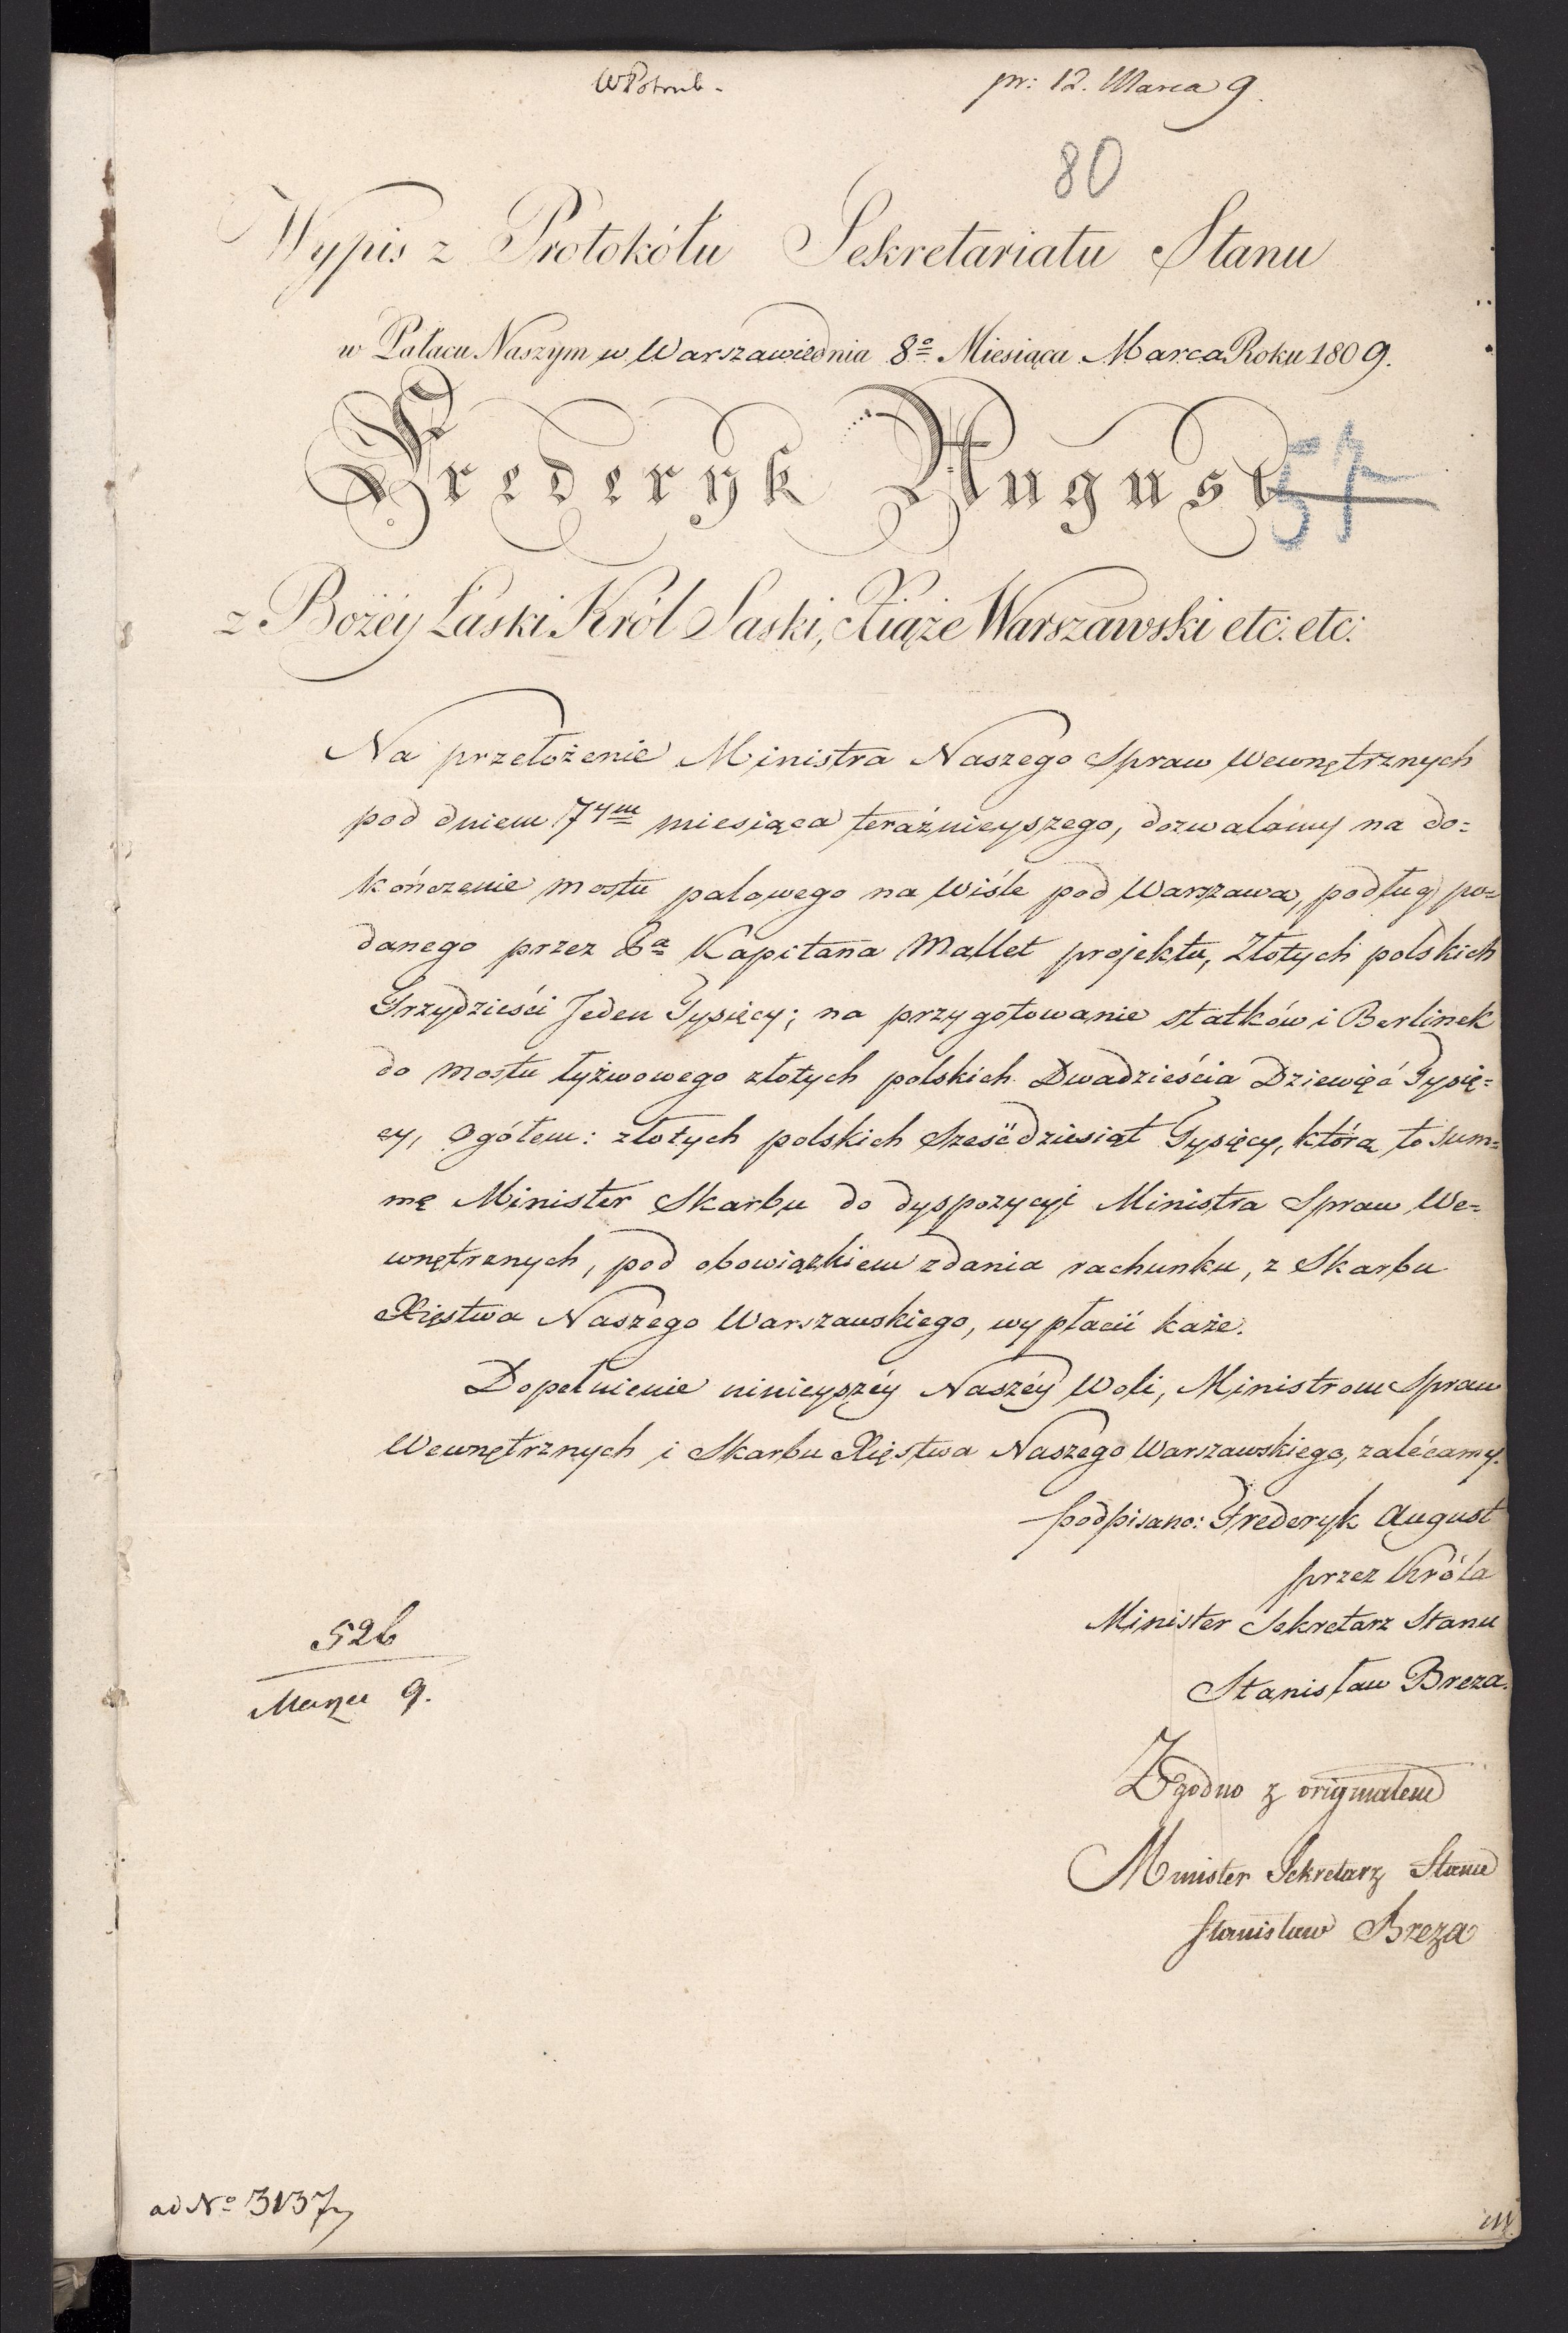 pr: 12. Marca 9.
80
Wypis z Protokółu Sekretariatu Stanu
w Pałacu Naszym w Warszawie dnia 8º Miesiąca Marca Roku 1809.
Frederyk August
57
z Bożéy Łaski Król Saski, Xiąże Warszawski etc: etc:
Na przełożenie Ministra Naszego Spraw Wewnętrznych
pod dniem 7ym miesiąca teraźnieyszego, dozwalamy na do=
kończenie mostu palowego na Wiśle pod Warszawą, podług po=
danego przez Kapitana Mallet projektu, Złotych polskich
Trzydzieści Jeden Tysięcy; na przygotowanie statków i Berlinek
do mostu łyżwowego złotych polskich Dwadzieścia Dziewięć Tysię=
cy, Ogółem: złotych polskich Sześćdziesiąt Tysięcy, którą to Sum=
mę Minister Skarbu do dyspozycyi Ministra Spraw We=
wnętrznych, pod obowiązkiem zdania rachunku, z Skarbu
Xięstwa Naszego Warszawskiego, wypłacić każe.
Dopełnienie ninieyszéy Naszéy Woli, Ministrom Spraw
Wewnętrznych i Skarbu Xięstwa Naszego Warszawskiego, zalécamy.
podpisano: Frederyk August
przez Króla
Minister Sekretarz Stanu
Stanisław Breza.
526
Marca 9.
Zgodno z originałem
Minister Sekretarz Stanu
Stanisław Breza
ad Nº 3137